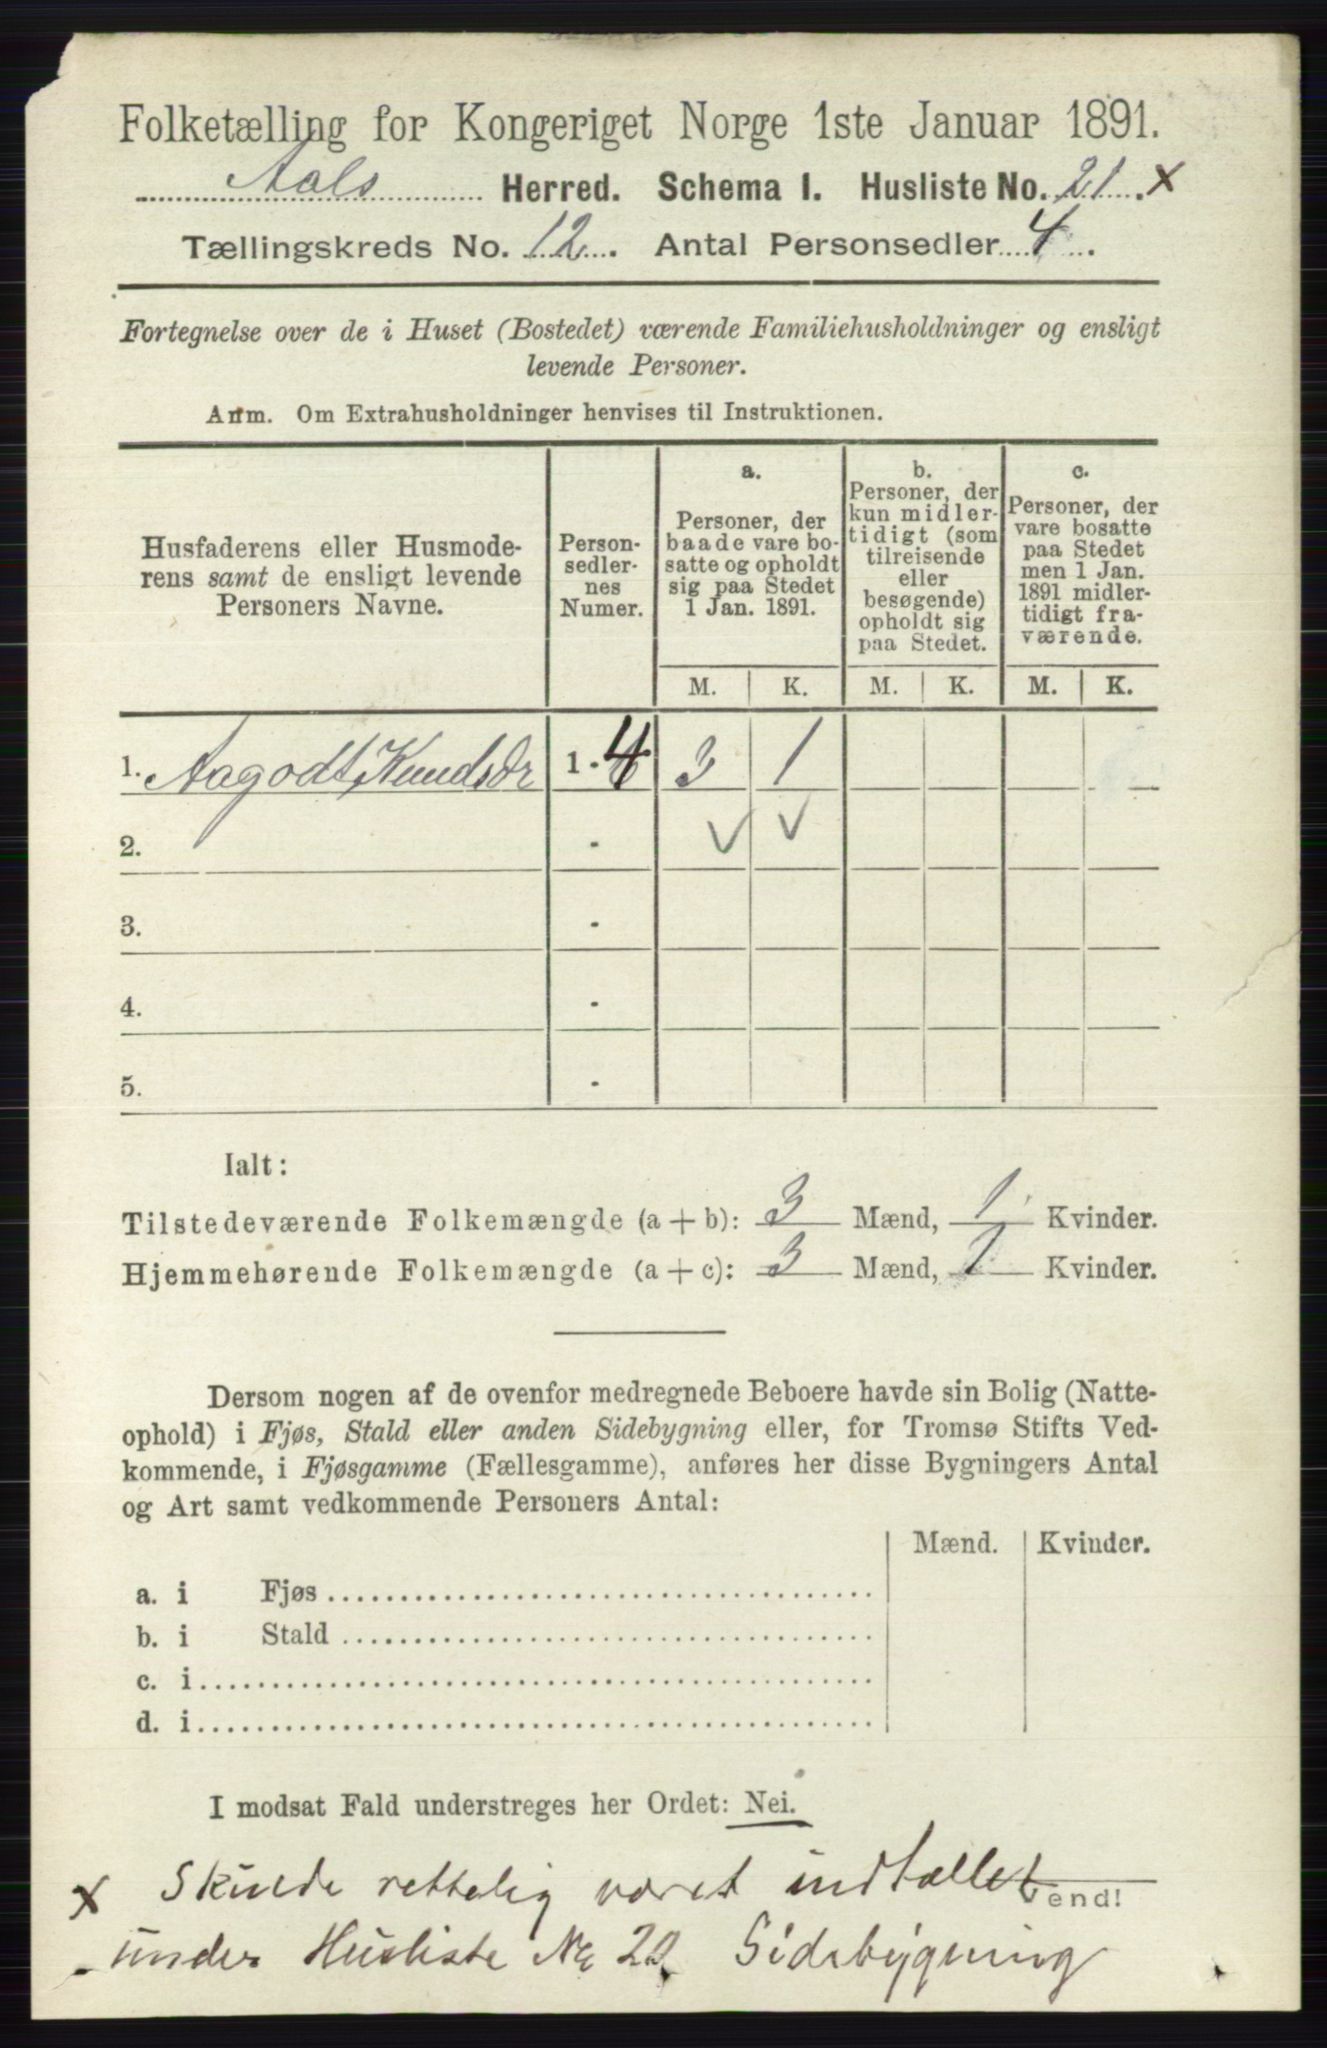 Folketælling for Kongeriget Norge 1ste Januar 1891.
Aals Herred. Schema 1. Husliste No. 21 x
Tællingskreds No. 12. Antal Personsedler 4.
Fortegnelse over de i Huset (Bostedet) værende Familiehusholdninger og ensligt
levende Personer.
Anm. Om Extrahusholdninger henvises til Instruktionen.
Husfaderens eller Husmode-
rens samt de ensligt levende
Personers Navne.
Person-
sedler-
nes
Numer.
a.
Personer, der
baade vare bo-
satte og opholdt
sig paa Stedet
1 Jan. 1891.
b.
Personer, der
kun midler-
tidigt (som
tilreisende
eller
besøgende)
opholdt sig
paa Stedet.
c.
Personer, der
vare bosatte
paa Stedet
men 1 Jan.
1891 midler-
tidigt fra-
værende.
M. K. M. K. M. K.
1. Aagodt Knudsdr 1 - 4 3 1
2. - V V
3. -
4. -
5. -
Ialt:
Tilstedeværende Folkemængde (a + b): 3 Mænd, 1 Kvinder.
Hjemmehørende Folkemængde (a + c): 3 Mænd, 1 Kvinder.
Dersom nogen af de ovenfor medregnede Beboere havde sin Bolig (Natte-
ophold) i Fjøs, Stald eller anden Sidebygning eller, for Tromsø Stifts Ved-
kommende, i Fjøsgamme (Fællesgamme), anføres her disse Bygningers Antal
og Art samt vedkommende Personers Antal:
Mænd. Kvinder.
a. i Fjøs
b. i Stald
c. i
d. i
I modsat Fald understreges her Ordet: Nei.
x Skulde rettelig været indtællet
Vend!
under Husliste No 20 Sidebygning